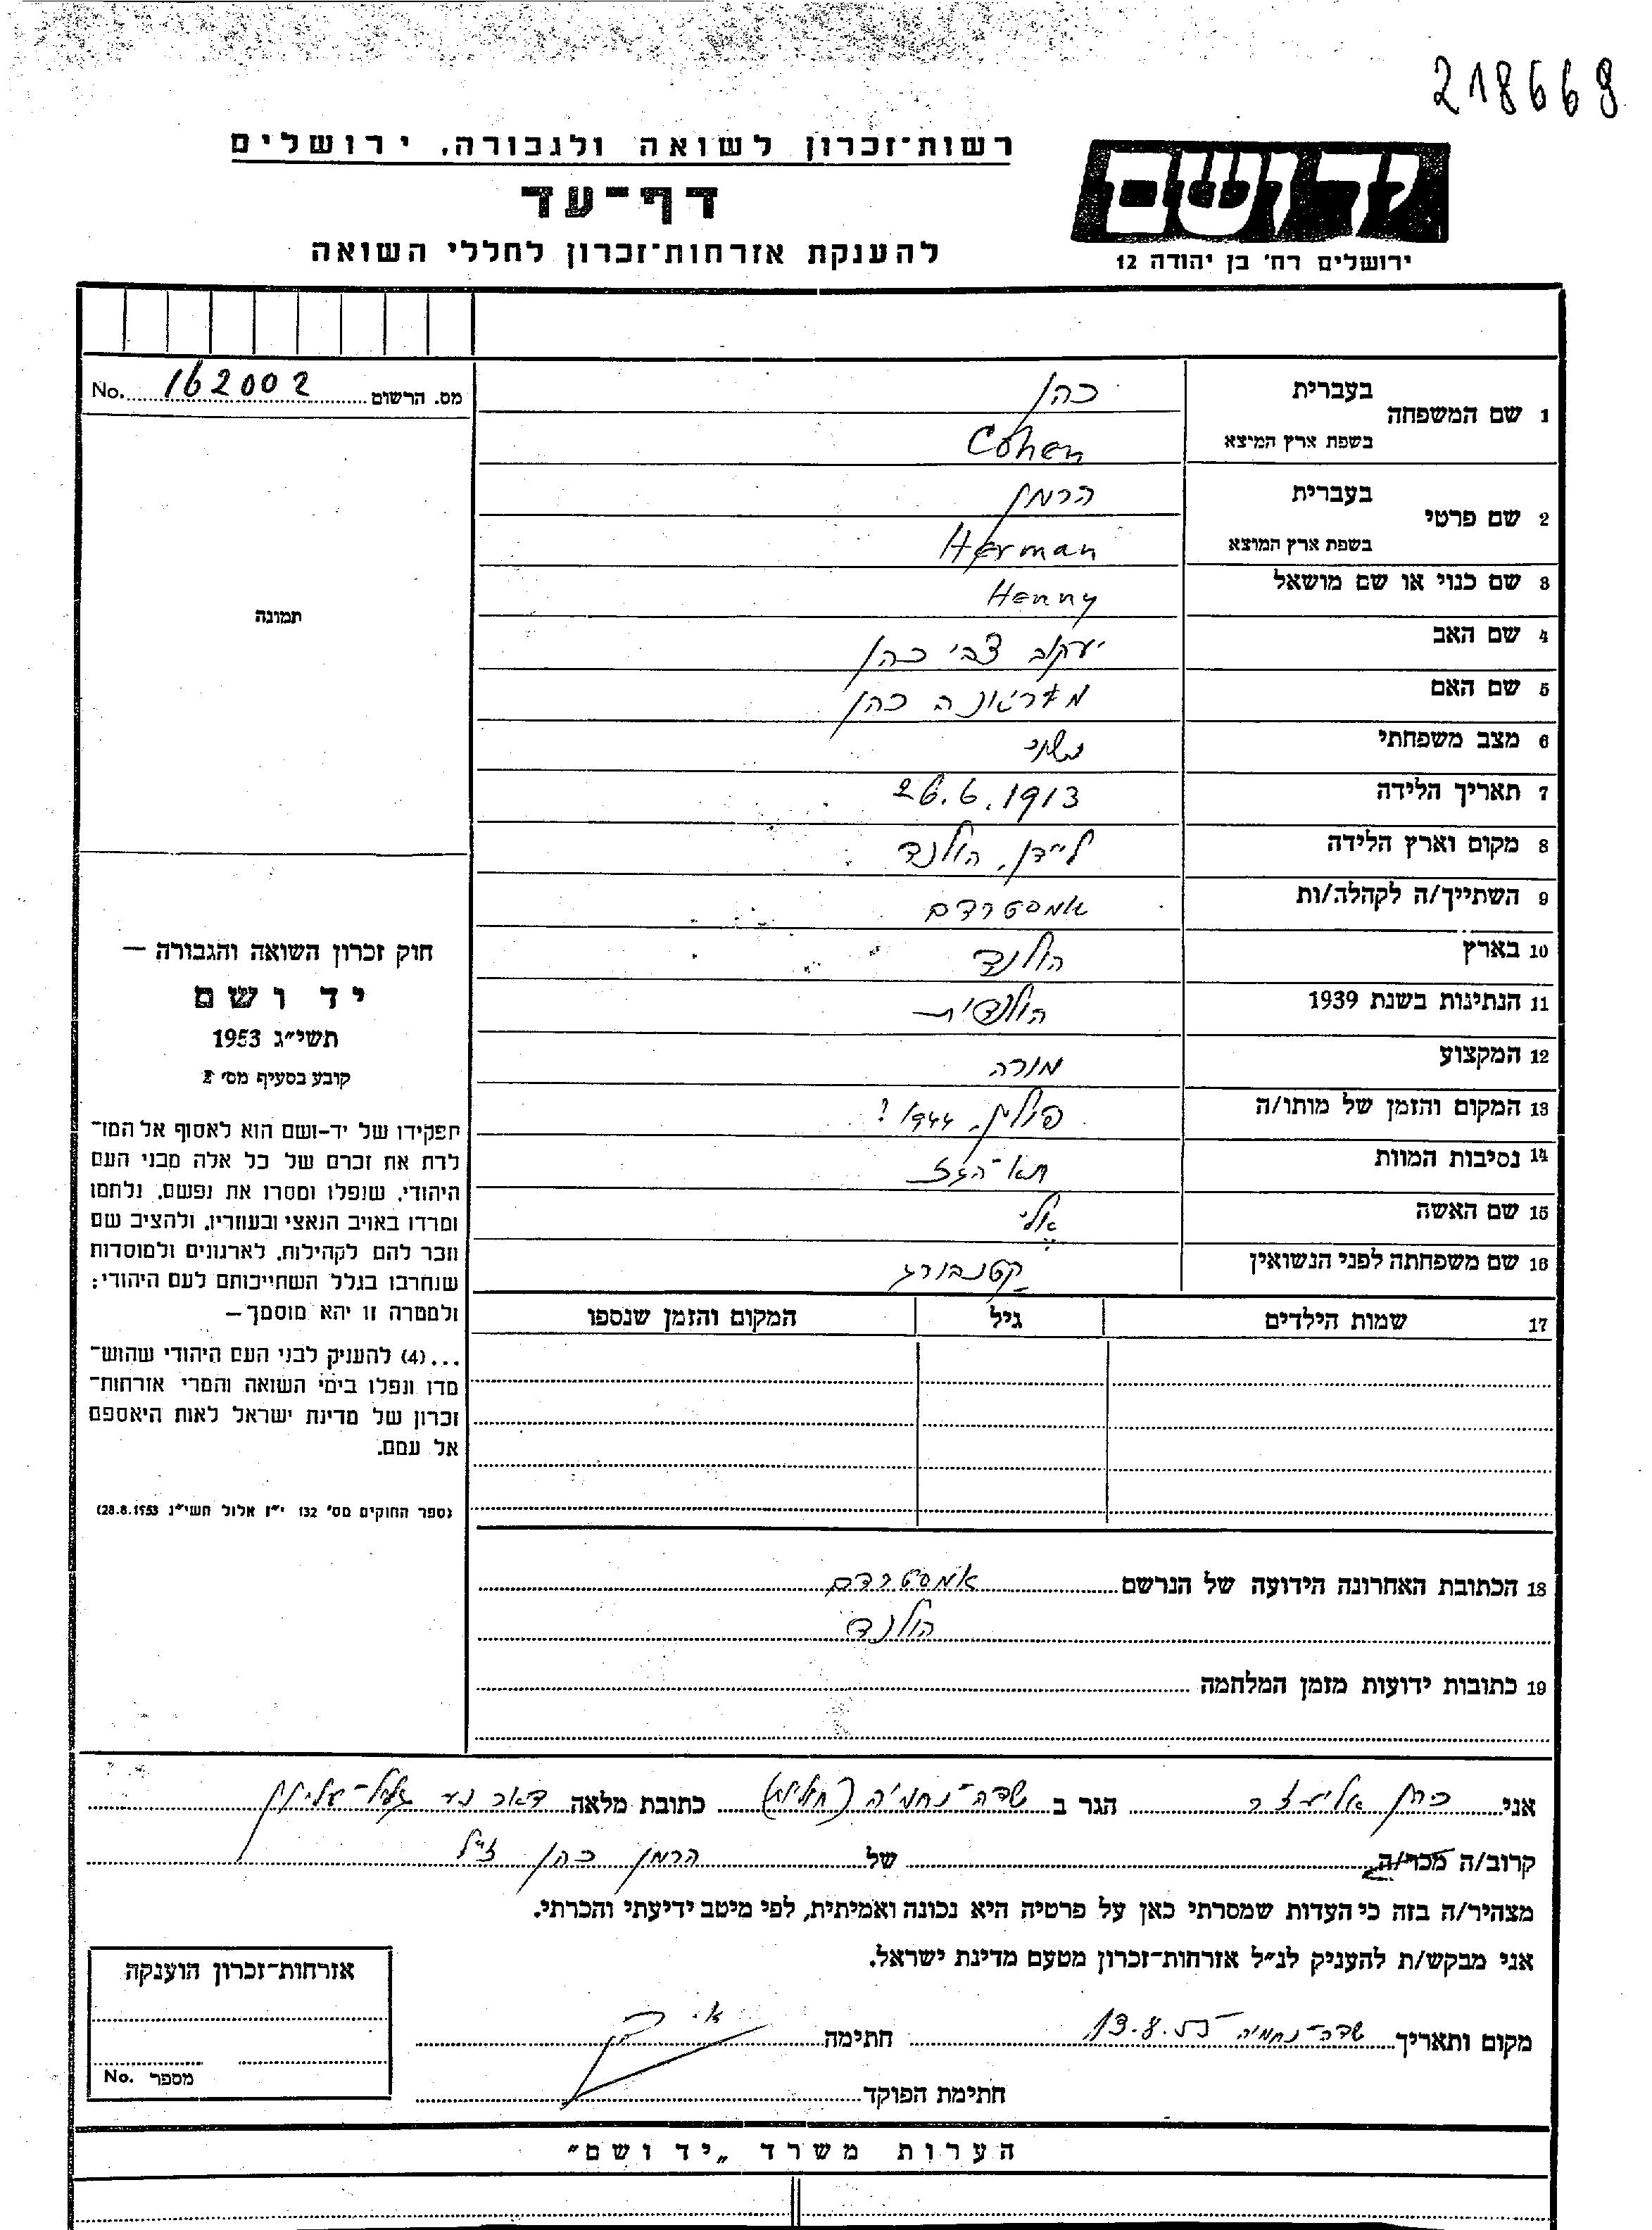 218669
רשות־זכרון לשואה ולגבורה, ירושלים
דף־עד
להענקת אזרחות־זכרון לחללי השואה
יד ושם
ירושלים רח' בן יהודה 12
מס. הרשום 162002 No.
תמונה
חוק זכרון השואה והגבורה —
יד ושם
תשי״ג 1953
קובע בסעיף מס' 2
תפקידו של יד-ושם הוא לאסוף אל המו־
לדת את זכרם של כל אלה מבני העם
היהודי, שנפלו ומסרו את נפשם, נלחמו
ומרדו באויב הנאצי ובעוזריו, ולהציב שם
וזכר להם לקהילות, לארגונים ולמוסדות
שנחרבו בגלל השתייכותם לעם היהודי;
ולמטרה זו יהא מוסמך —
...(4) להעניק לבני העם היהודי שהוש־
מדו ונפלו בימי השואה והמרי אזרחות־
זכרון של מדינת ישראל לאות היאספם
אל עמם.
(ספר החוקים מס' 132 י״ז אלול תשי״ג 28.8.1953)
1 שם המשפחה בעברית כהן
בשפת ארץ המיצא Cohen
2 שם פרטי בעברית הרמן
בשפת ארץ המוצא Herman
3 שם כנוי או שם מושאל Henny
4 שם האב יעקב צבי כהן
5 שם האם כהן
6 מצב משפחתי נשוי
7 תאריך הלידה 26.6.1913
8 מקום וארץ הלידה ליידן, הולנד
9 השתייך/ה לקהלה/ות אמסטרדם
10 בארץ הולנד
11 הנתינות בשנת 1939 הולנדית
12 המקצוע מורה
13 המקום והזמן של מותו/ה פולין, 1944 ?
14 נסיבות המוות תא־הגז
15 שם האשה אלי
16 שם משפחתה לפני הנשואין קטנבורג
17 שמות הילדים גיל המקום והזמן שנספו
18 הכתובת האחרונה הידועה של הנרשם אמסטרדם
הולנד
19 כתובות ידועות מזמן המלחמה
אני כהן אליעזר הגר ב שדה־נחמיה (חוליות) כתובת מלאה דאר נע גליל־עליון
קרוב/ה מכר/ה של הרמן כהן ז״ל
מצהיר/ה בזה כי העדות שמסרתי כאן על פרטיה היא נכונה ואמיתית, לפי מיטב ידיעתי והכרתי.
אני מבקש/ת להעניק לנ״ל אזרחות־זכרון מטעם מדינת ישראל.
מקום ותאריך שדה־נחמיה 13.8.55 חתימה
חתימת הפוקד
אזרחות־זכרון הוענקה
מספר No.
הערות משרד „יד ושם״